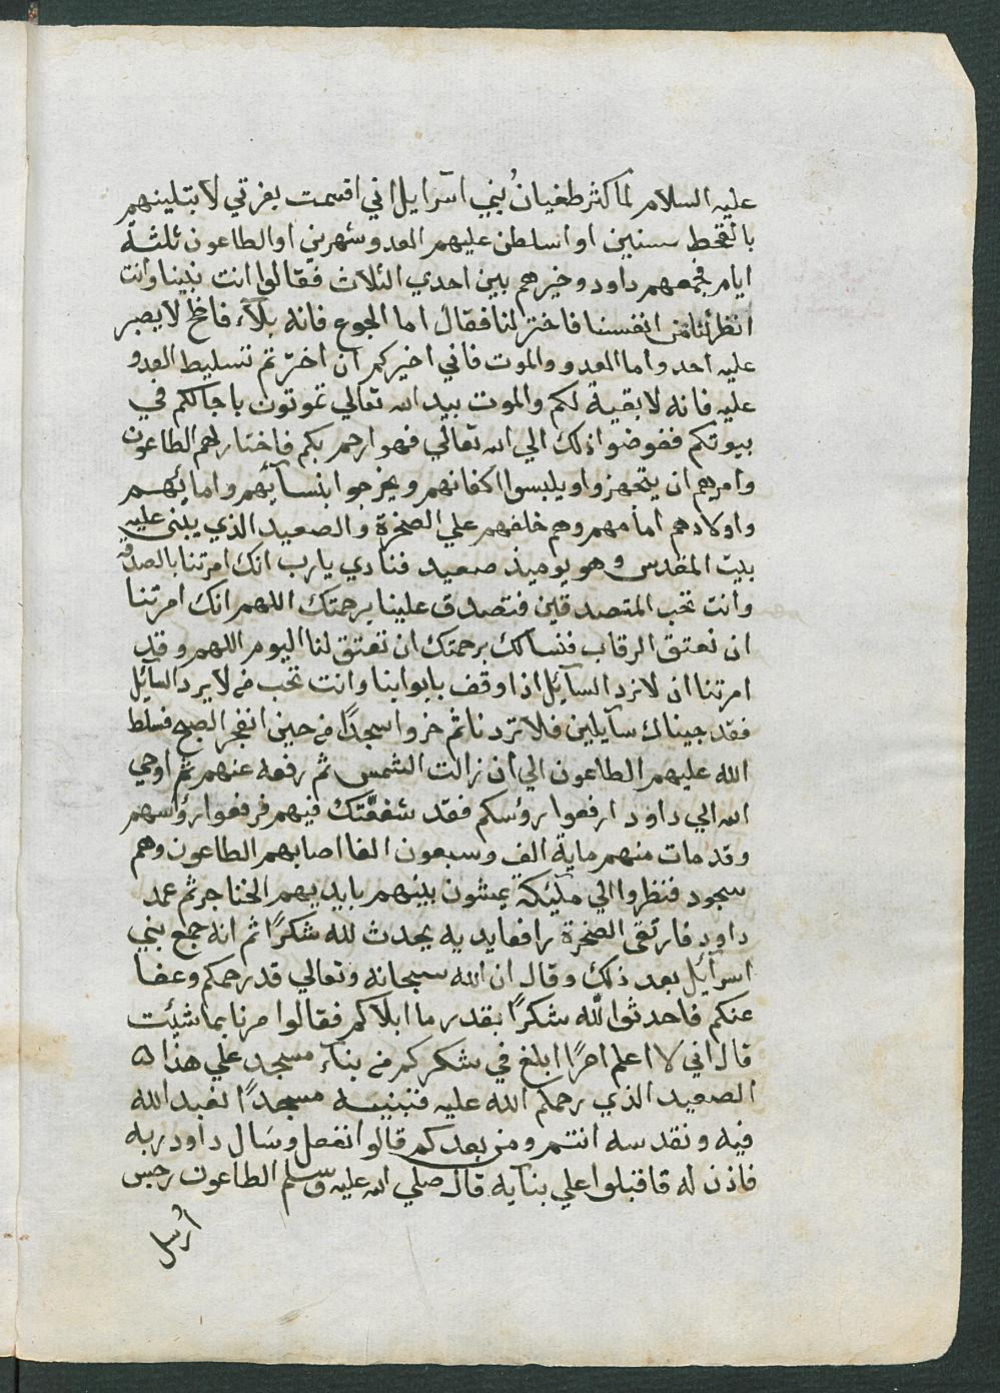 عليه السلام لما كثر طغيان بني اسرايل اني اقسمت بعزتي لابتلينهم
بالقحط سنين او اسلطن عليهم العدو شهرين او الطاعون ثلثة
ايام فجمعهم داود وخيرهم بين احدي الثلاث فقالوا انت نبينا وانت
انظر لنا من انفسنا فاختر لنا فقال اما الجوع فانه بلآء فاضح لا يصبر
عليه احد واما العدو والموت فاني اخبركم ان اخترتم تسليط العدو
عليه فانه لا بقية لكم والموت بيد الله تعالي تموتون باجالكم في
بيوتكم ففوضوا ذلك الي الله تعالي فهو ارحم بكم فاختار لهم الطاعون
وامرهم ان يتجهزوا ويلبسوا اكفانهم ويخرجوا بنسآئهم وامائهم
واولادهم امامهم وهم خلفهم علي الصخرة والصعيد الذي يبنى عليه
بيت المقدس وهو يوميذ صعيد فنادي يا رب انك امرتنا بالصدقة
وانت تحب المتصدقين فتصدق علينا برحمتك اللهم انك امرتنا
ان نعتق الرقاب فنسالك برحمتك ان تعتق لنا اليوم اللهم وقد
امرتنا ان لا نرد السآيل اذا وقف بابوابنا وانت تحب من لا يرد السآيل
فقد جيناك سآيلين فلا تردنا ثم خروا سجدًا من حين انفجر الصبح فسلط
الله عليهم الطاعون الي ان زالت الشمس ثم رفعه عنهم ثم اوحي
الله الي داود ارفعوا رؤسكم فقد شفعتك فيهم فرفعوا رؤسهم
وقد مات منهم ماية الف وسبعون الفا اصابهم الطاعون وهم
سجود فنظروا الي مليكة يمشون بينهم بايديهم الخناجر ثم عمد
داود فارتقى الصخرة رافعا يديه يحدث لله شكرًا ثم انه جمع بني
اسرآيل بعد ذلك وقال ان الله سبحانه وتعالي قد رحمكم وعفا
عنكم فاحدثوا لله شكرًا بقدر ما ابلاكم فقالوا مرنا بما شيئت
قال اني لا اعلم امرًا ابلغ في شكركم من بنآء مسجد علي هذا
الصعيد الذي رحمكم الله عليه فنبنيه مسجدًا نعبد الله
فيه ونقدسه انتم ومن بعدكم قالوا نفعل وسال داود ربه
فاذن له فاقبلوا علي بنآيه قال صلي الله عليه وسلم الطاعون رجس
أرسل